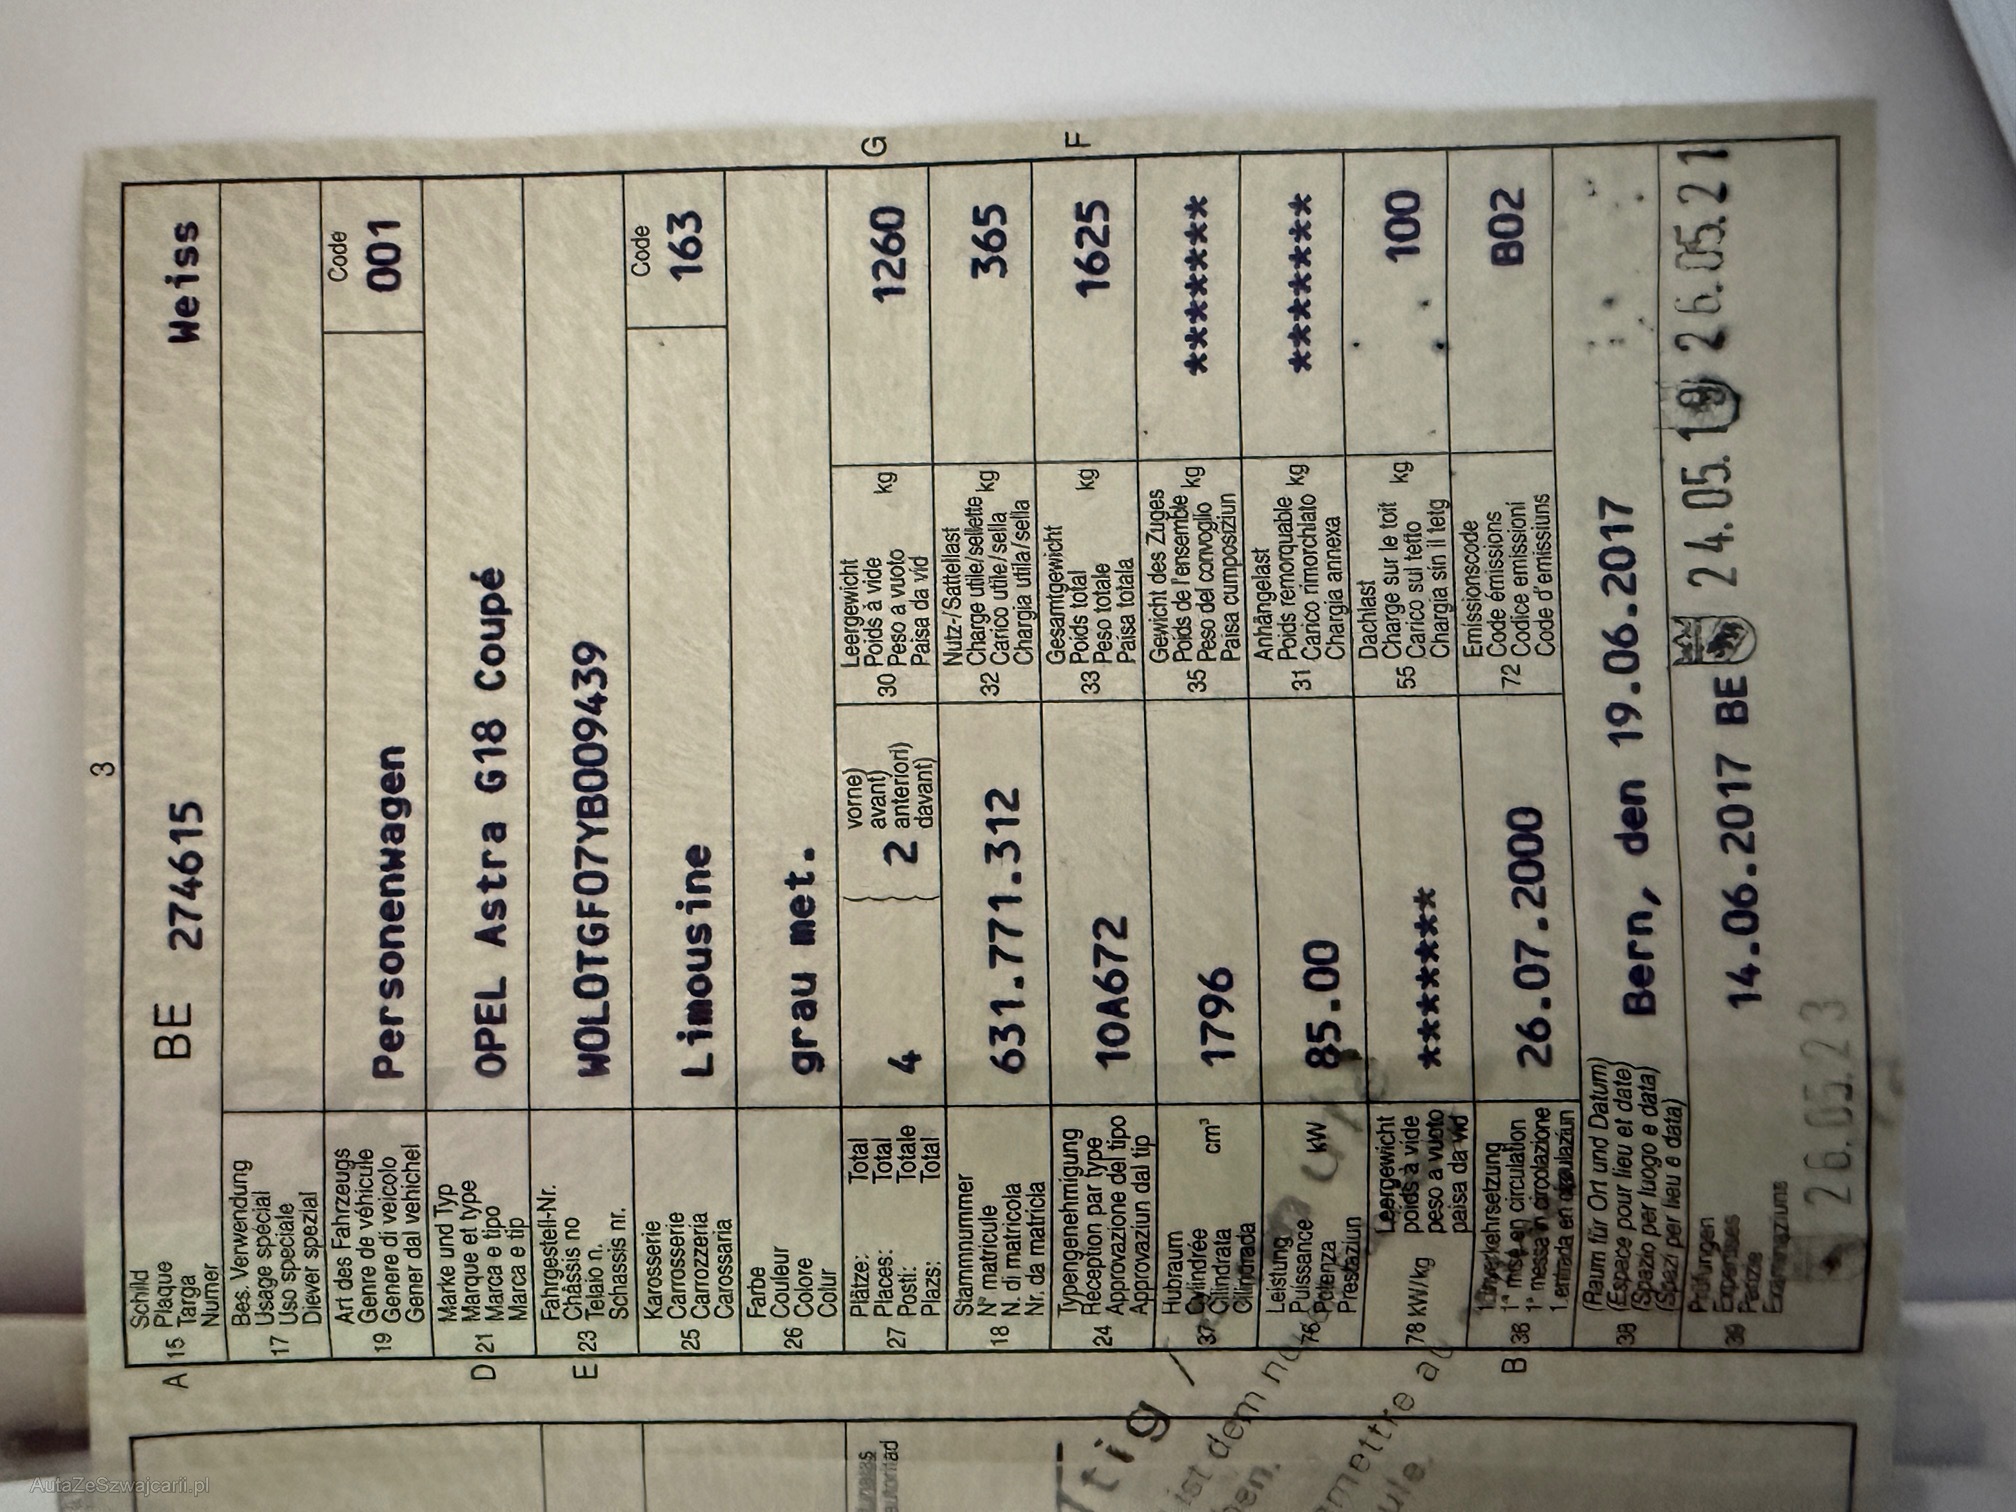 3
A 15 Schild
Plaque
Targa
Numer
BE 274615 Weiss
17 Bes. Verwendung
Usage spécial
Uso speciale
Diever spezial
19 Art des Fahrzeugs
Genre de véhicule
Genere di veicolo
Gener dal vehichel
Personenwagen
Code
001
D 21 Marke und Typ
Marque et type
Marca e tipo
Marca e tip
OPEL Astra G18 Coupé
E 23 Fahrgestell-Nr.
Châssis no
Telaio n.
Schassis nr.
W0L0TGF07YB009439
25 Karosserie
Carrosserie
Carrozzeria
Carossaria
Limousine
Code
163
26 Farbe
Couleur
Colore
Colur
grau met.
27 Plätze: Total
Places: Total
Posti: Totale
Plazs: Total
4
2
vorne)
avant)
anteriori)
davant)
30 Leergewicht
Poids à vide
Peso a vuoto kg
Paisa da vid
1260
G
18 Stammnummer
N° matricule
N. di matricola
Nr. da matricla
631.771.312
32 Nutz-/Sattellast
Charge utile/sellette
Carico utile/sella kg
Chargia utila/sella
365
24 Typengenehmigung
Réception par type
Approvazione del tipo
Approvaziun dal tip
10A672
33 Gesamtgewicht
Poids total kg
Peso totale
Paisa totala
1625
F
37 Hubraum
Cylindrée
Cilindrata cm³
Cilindrada
1796
35 Gewicht des Zuges
Poids de l'ensemble
Peso del convoglio kg
Paisa cumposiziun
*******
76 Leistung
Puissance
Potenza kW
Prestaziun
85.00
31 Anhängelast
Poids remorquable
Carico rimorchiato kg
Chargia annexa
*******
78 kW/kg Leergewicht
poids à vide
peso a vuoto
paisa da vid
*******
55 Dachlast
Charge sur le toit kg
Carico sul tetto
Chargia sin il tetg
100
B 36 1. Inverkehrsetzung
1re mise en circulation
1a messa in circolazione
1. entrada en circulaziun
26.07.2000
72 Emissionscode
Code émissions
Codice emissioni
Code d'emissiuns
B02
38 (Raum für Ort und Datum)
(Espace pour lieu et date)
(Spazio per luogo e data)
(Spazi per lieu e data)
Bern, den 19.06.2017
39 Prüfungen
Expertises
Perizie
Examinaziuns
14.06.2017 BE 24.05.19 26.05.21
26.05.23
autorităd
ist dem
AutaZeSzwajcarii.pl